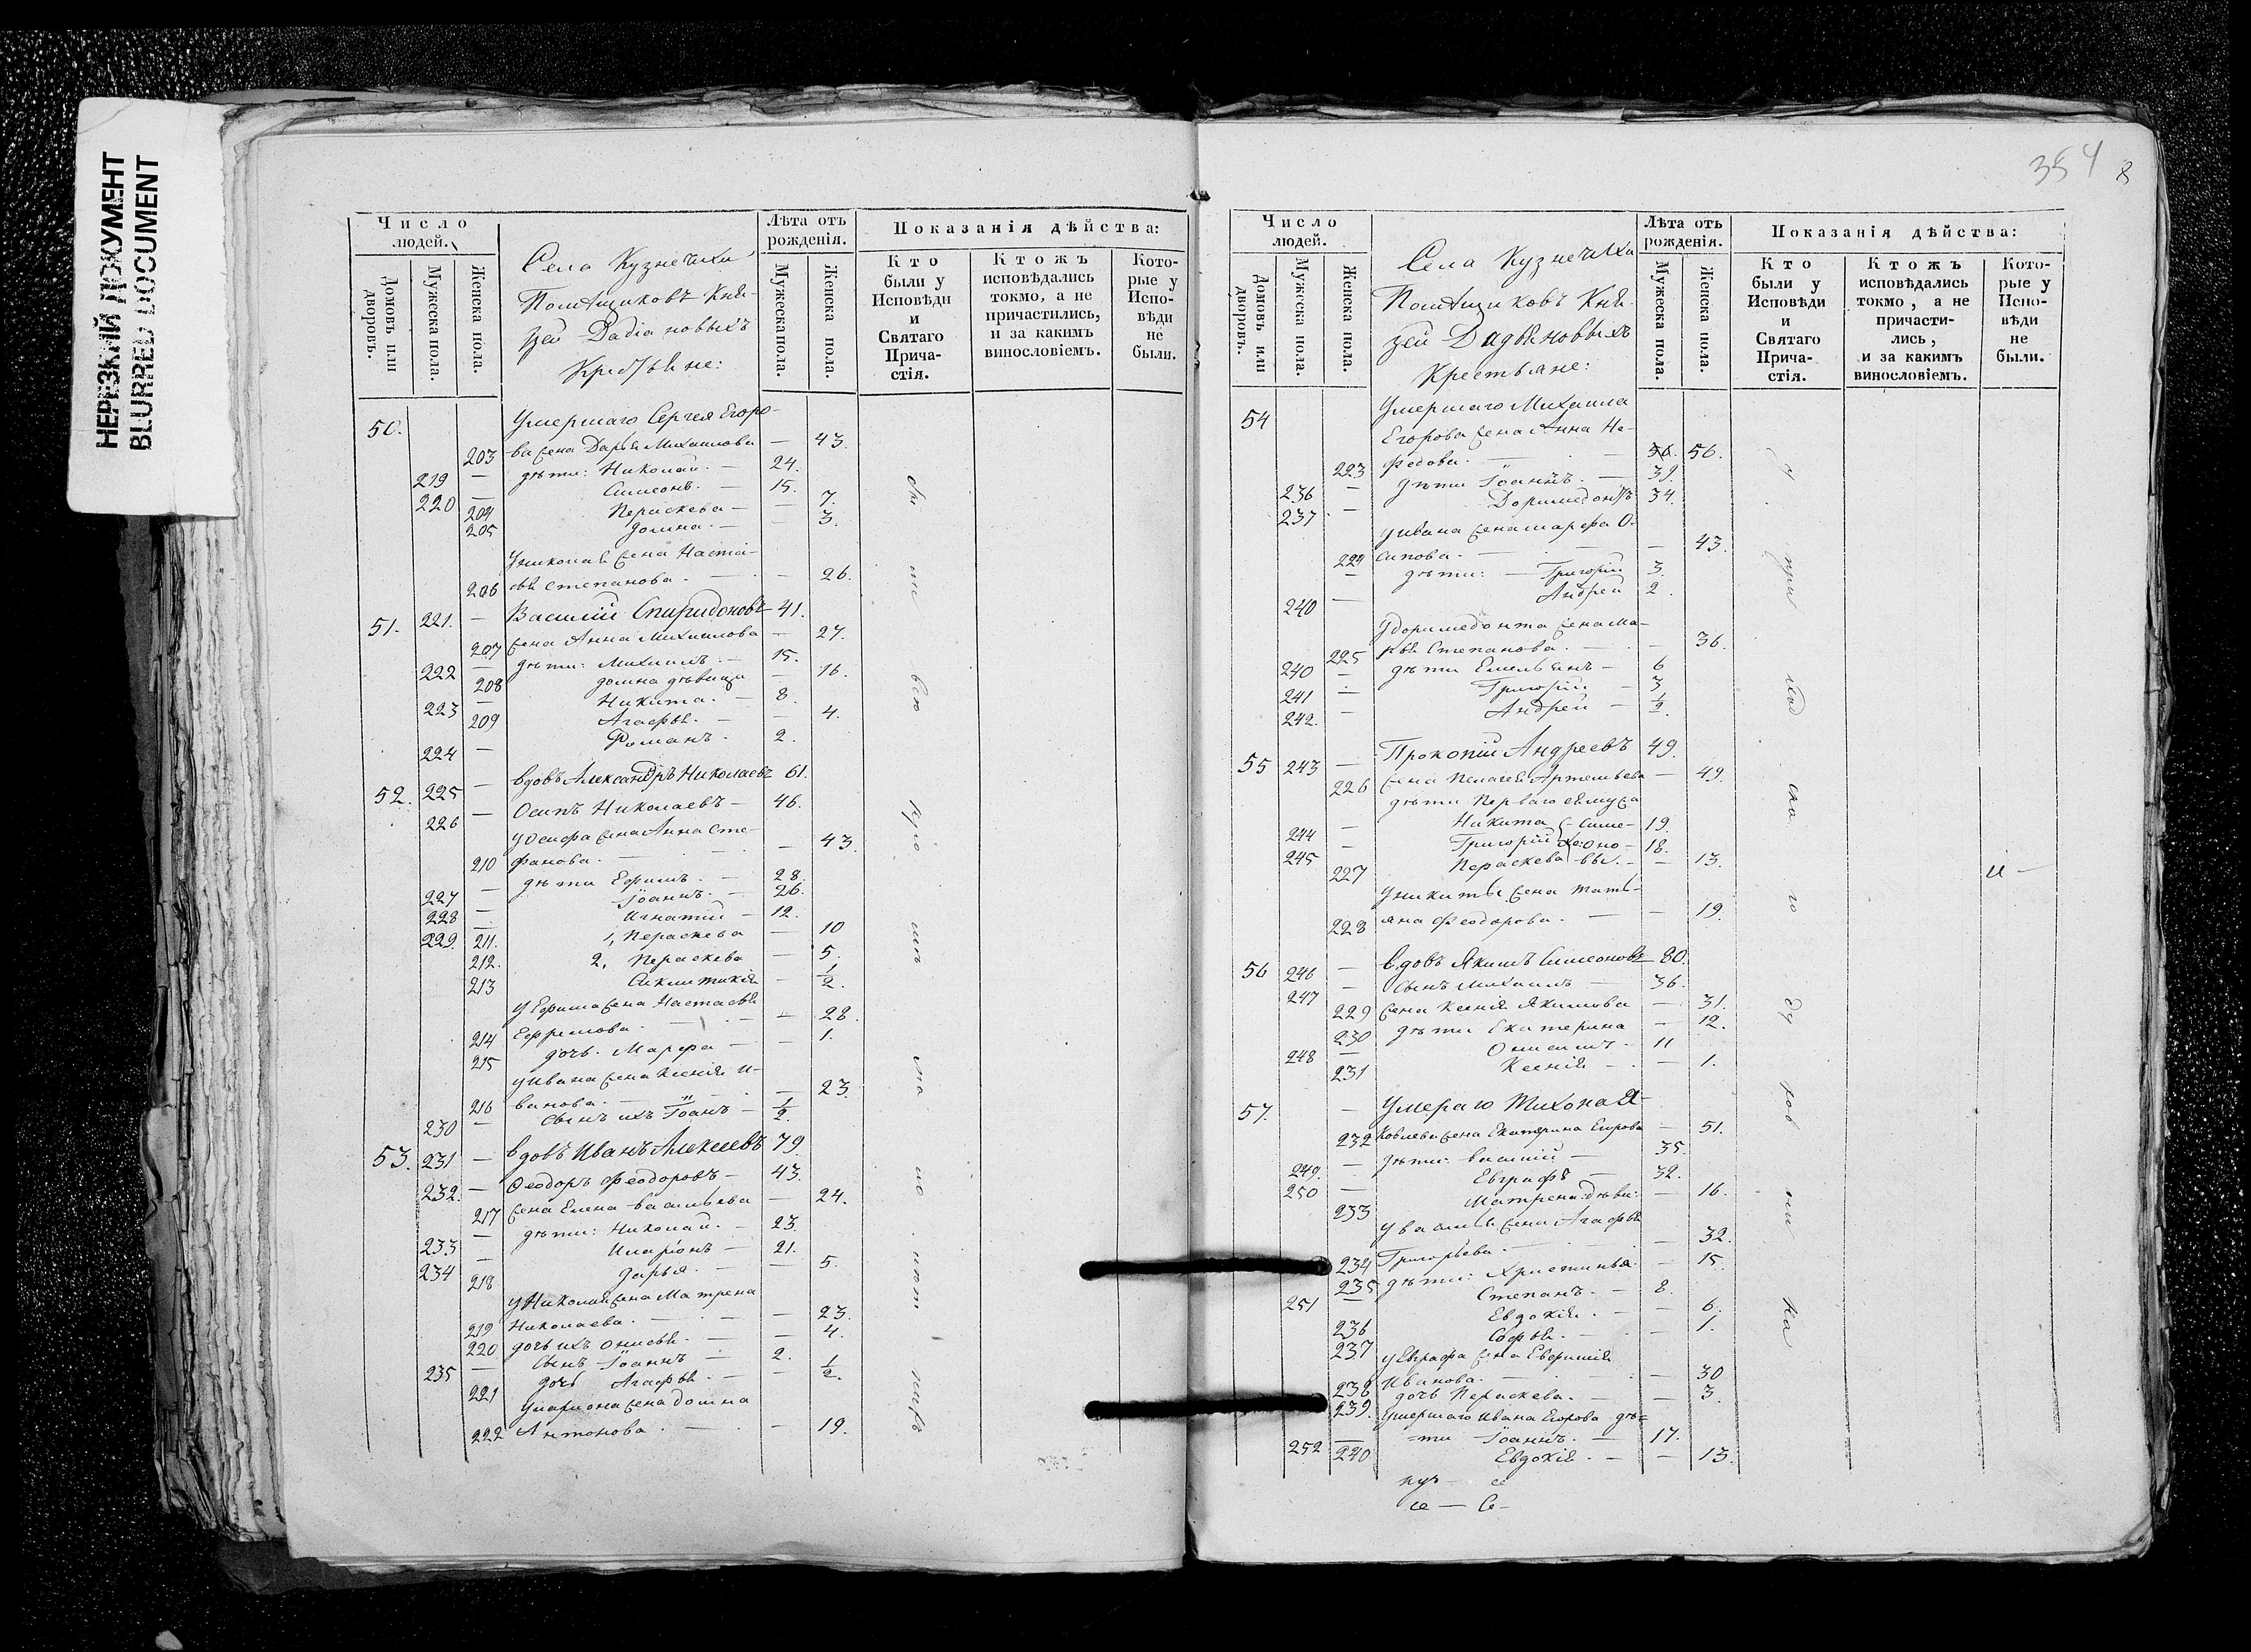 НЕРЕЗКИЙ ДОКУМЕНТ
BLURRED DOCUMENT
Число людей.
Домовъ или дворовъ.
Мужеска пола.
Женска пола.
Села Кузнечихи
Помѣщиковъ Кня-
зей Дадіановыхъ
Крестьяне:
Лѣта отъ рожденія.
Мужеска пола.
Женска пола.
Показанія дѣйства:
Кто были у Исповѣди и Святаго Прича-стія.
Ктожъ исповѣдались токмо, а не причастились, и за какимъ винословіемъ.
Кото-рые у Испо-вѣди не были.
50. Умершаго Сергея Егоро-
203 ва жена Дарья Михаилова — 43.
219 — дѣти: Николай. — 24.
220 — Симеонъ. — 15.
204 Пераскева — — 7.
205 Домна. — — 3.
У Николая жена Настас-
206 ья Степанова. — — 26.
51. 221. — Василій Спиридоновъ 41.
207 жена Анна Михаилова — 27.
222 — дѣти: Михаилъ. — 15.
208 Домна дѣвица — 16.
223 — Никита. — 8.
209 Агафья. — — 4.
224 — Романъ. 2.
52. 225 — вдовъ Александръ Николаевъ 61.
226 — Осипъ Николаевъ — 46.
У Осифа жена Анна Сте-
210 фанова. — — 43.
227 — дѣти Ефимъ. — 28.
228 — Іоаннъ. — 26.
229. — Игнатій — 12.
211. 1, Пераскева — 10
212. 2, Пераскева — 5.
213 Синклитикія — 1/2.
У Ефима жена Настасья
214 Ефремова. — — 28.
215 дочь. Марфа — — 1.
У Ивана жена Ксенія И-
216 ванова. — — 23.
230 — Сынъ ихъ Іоанъ — 1/2.
53. 231 — вдовъ Иванъ Алексеевъ 79.
232. — Феодоръ Феодоровъ — 43.
217 жена Елена Васильева — 24.
233 — дѣти: Николай. — 23.
234 — Иларіонъ — 21.
218 Дарья. — — 5.
У Николая жена Матрена
219 Николаева. — — 23.
220 дочь ихъ Онисья. — — 4.
235 — Сынъ Іоаннъ — 2.
221 дочь Агафья. — — 1/2.
У Иларіона жена Домна
222 Антонова. — — 19.
354 8
Число людей.
Домовъ или дворовъ.
Мужеска пола.
Женска пола.
Села Кузнечиха
Помѣщиковъ Кня-
зей Дадьяновыхъ
Крестьяне:
Лѣта отъ рожденія.
Мужеска пола.
Женска пола.
Показанія дѣйства:
Кто были у Исповѣди и Святаго Прича-стія.
Ктожъ исповѣдались токмо, а не причасти-лись, и за какимъ винословіемъ.
Кото-рые у Испо-вѣди не были.
54 Умершаго Михаила
Егорова жена Анна Не-
223 федова. — — 56. 56.
236 — дѣти Іоаннъ. — 39.
237 — Доримедонтъ 34.
У Ивана жена Марфа О-
224 сипова. — — 43.
— дѣти: — Григорій 3.
240 — Андрей 2.
У Доримедонта жена Ма-
225 рья Степанова. — — 36.
240 — дѣти Емельянъ — 6
241 — Григорій — 3
242. — Андрей — 1/2.
55 243 — Прокопій Андреевъ 49.
226 жена Пелагея Артемьева — 49.
дѣти Перваго ея мужа
244 — Никита Симе- 19.
245 — Григорій оно- 18.
227 Пераскева вы. — — 13.
У Никиты жена Тать-
228 яна Феодорова. — — 19.
56 246 — вдовъ Якимъ Симеоновъ 80.
247 — Сынъ Михаилъ — 36.
229 жена Ксенія Якимова — 31.
230 дѣти Екатерина — 12.
248 — Онисимъ. 11
231 Ксенія — — 1.
57. — Умераго Тихона Я-
232 ковлева жена Екатерина Егорова — 51.
249. — дѣти: Василій — 35.
250 — Евграфъ — 32.
233 Матрена: дѣви: — 16.
У Василья жена Агафья
234 Григорьева. — — 32.
235 дѣти: Христинья. — 15.
251 — Степанъ. — 8.
236 Евдокія. — — 6.
237 Софья. — — 1.
У Евграфа жена Евфимія
238 Иванова. — — 30
239. дочь Пераскева. — — 3.
Умершаго Ивана Егорова дѣ=
252 — =ти Іоаннъ. — 17.
240 Евдокія. — — 13.